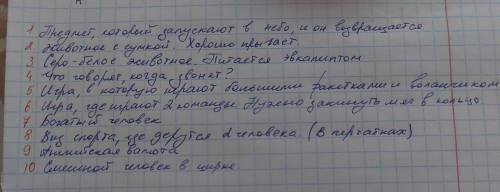 1 Предмет, который запускают в небо, и он возвращается.
2 Животное с сумкой. Хорошо прыгает.
3 Серо-белое животное. Питается эвкалиптом
4 Что говорят, когда звонят?
5 Игра, в которую играют большими ракетками и воланчиком
6 Игра, где играют 2 команды. Нужно закинуть мяч в кольцо
7 Богатый человек
8 Вид спорта, где дерутся 2 человека (в перчатках)
9 Английская валюта
10 Смешной человек в цирке